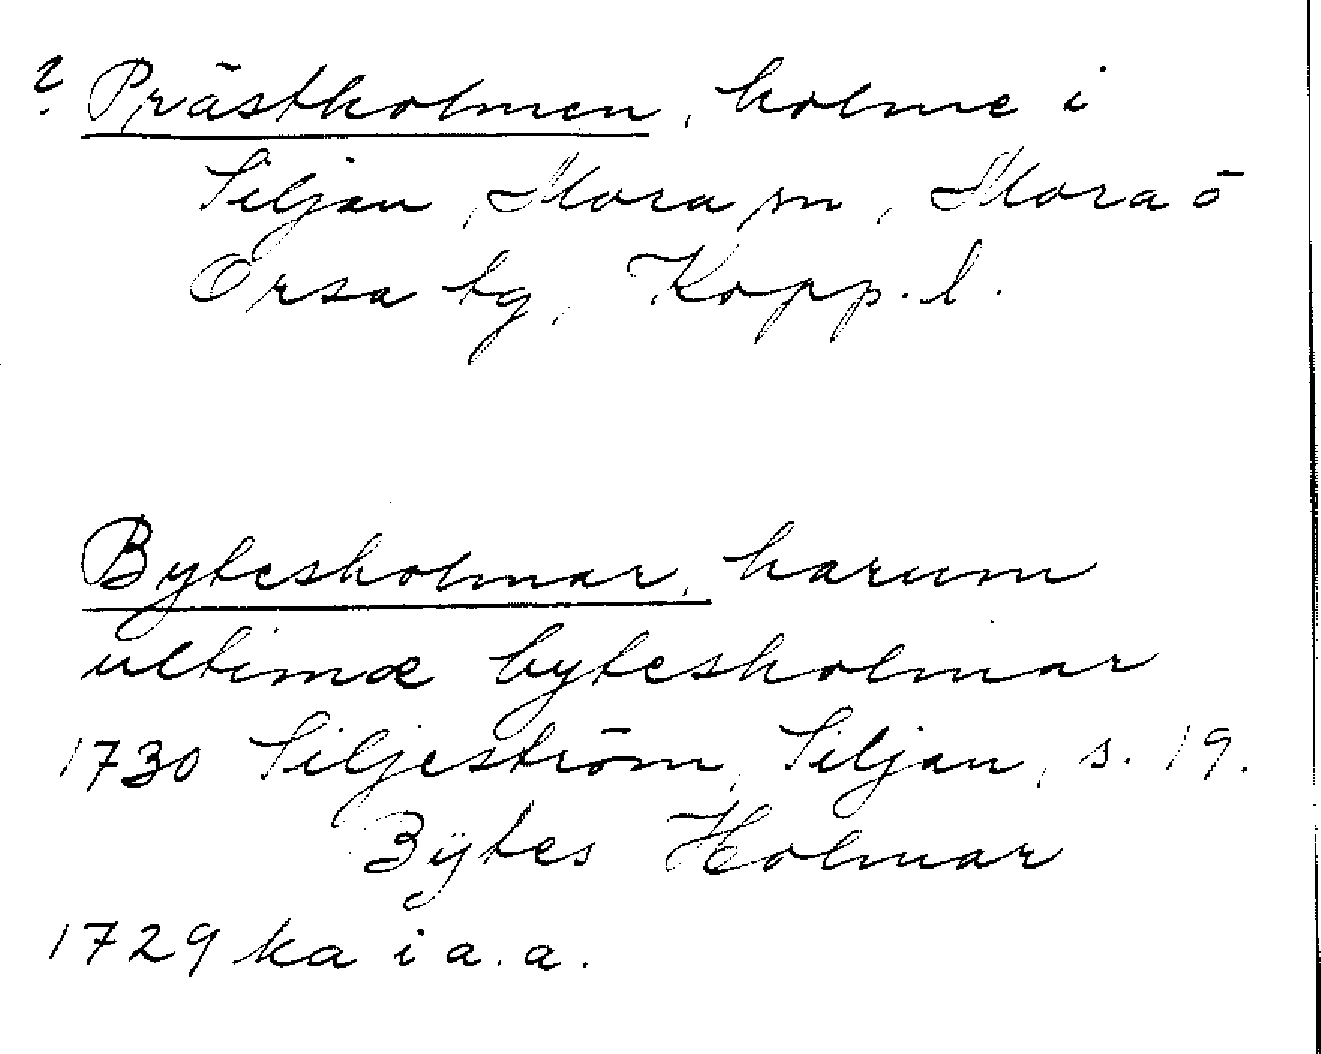 ? Prästholmen, holme i
Siljan, Mora sn, Mora o
Orsa tg, Kopp. l.
Bytesholmar, harum
ultimæ bytesholmar
1730 Siljeström, Siljan, s. 19.
Bÿtes Holmar
1729 ka i a. a.